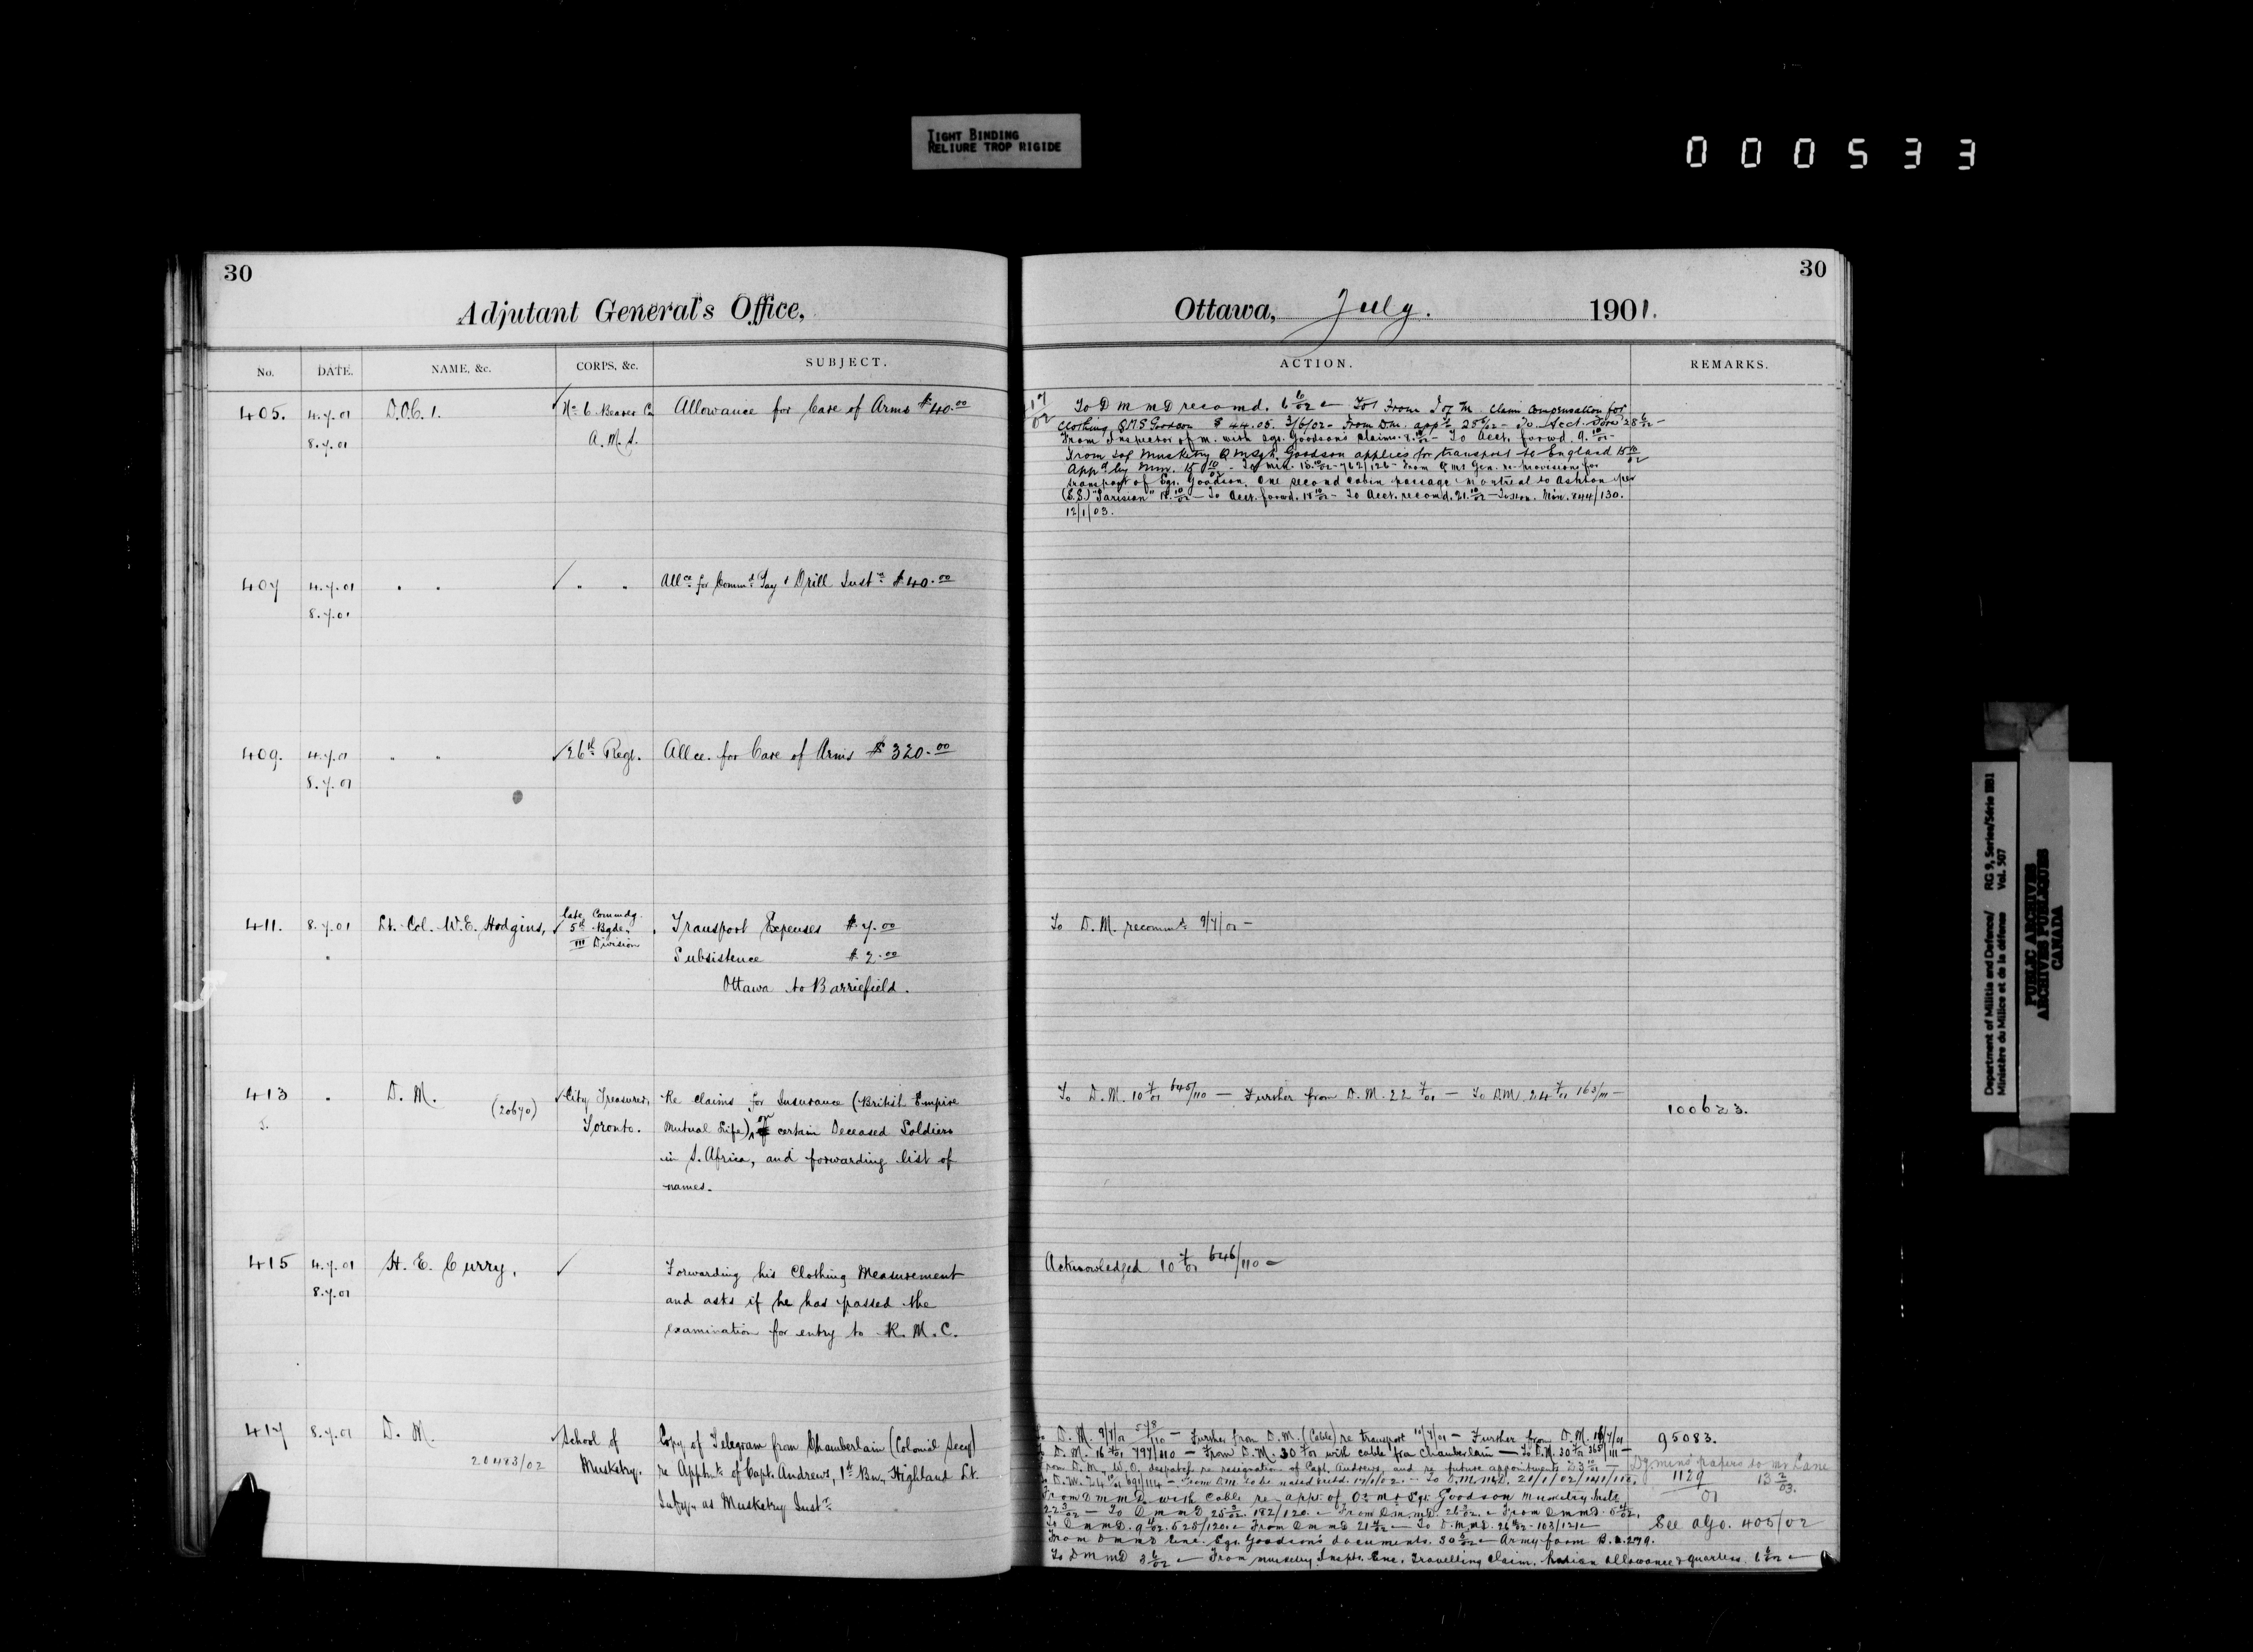 TIGHT BINDING
RELIURE TROP RIGIDE
000533
30
Adjutant General's Office,
No. DATE. NAME, &c. CORPS, &c. SUBJECT.
405. 4.7.01 D.O.C. 1. No. 6 Bearer Co Allowance for Care of Arms $40.00
8.7.01 A.M.S.
407 4.7.01 " " " " Allce for Commd Pay & Drill Instn $40.00
8.7.01
409. 4.7.01 " " 26th Regt. Allce. for Care of Arms $320.00
8.7.01
411. 8.7.01 Lt. Col. W.E. Hodgins, late Commdg. 5th Bgde, III Division Transport Expenses $7.00
" Subsistence $2.00
Ottawa to Barriefield.
413 " D.M. (20670) City Treasurer, Re claims for Insurance (British Empire
Toronto. Mutual Life), on certain Deceased Soldiers
in S. Africa, and forwarding list of
names.
415 4.7.01 H. E. Curry, Forwarding his Clothing Measurement
8.7.01 and asks if he has passed the
examination for entry to R.M.C.
417 8.7.01 D. M. School of Copy of Telegram from Chamberlain (Colonial Secy)
20483/02 Musketry. re Apptmt. of Capt. Andrews, 1st Bn, Highland Lt.
Infy. as Musketry Instr.
30
Ottawa, July. 1901.
ACTION. REMARKS.
To D M M D recomd. 6 6/02 From I of M. Claim Compensation for
Clothing QMS Goodson $44.05. 3/6/02 - From D.M. appd.
From Inspector of M. with Sgt. Goodson's Claims. To Acct. forwd. 9.10/02 -
From Insp Musketry QMSgt. Goodson applies for transport to England 15 10/02
Appd by Min. 15 10/02 - 762/126 - From Q M Gen. re provision for
transport of Sgt. Goodson. One second cabin passage Montreal to Ashton per
(S.S.) "Parisian" - To Acct. forwd. - To Acct. recomd. 21.10/02 - 844/130.
12/1/03.
To D.M. recommd. 9/7/01 -
To D.M. 10 7/01 645/110 - Further from D.M. 22 7/01 - To DM 24 7/01 163/111 -
100623.
Acknowledged 10 7/01 646/110 -
To D.M. 9/7/01 578/110 - Further from D.M. (Cable) re transport 10/7/01 - Further from D.M. 16/7/01
95083.
To D.M. 16 7/01 797/110 - From D.M. 30 7/01 with cable fra Chamberlain - To D.M. 30 7/01 265/111 -
From D.M., W.O. despatch re resignation of Capt. Andrews, and re future appointments
Dy mins papers to Mr Lane
1129/01
13 2/03.
To D.M. 691/114 - To D.M.M.D. 21/1/02
From D M M D with Cable re appt. of Qr. Mr Sgt Goodson Musketry Instr.
22 3/02 - To D M M D 25 3/02. 182/120. From D M M D. 26 3/02. From D M M D. 5 4/02.
To D M M D. 9 4/02. 525/120. From D M M D 21 4/02 - To D.M.M.D. 26 4/02 - 103/121
See AGO. 405/02
From D M M D Enc. Sgt. Goodson's documents. 30 5/02 Army form B. 279.
To D M M D 3 6/02 - From Musketry Inspt. Enc. Travelling Claim. Ration allowance & quarters. 6 6/02
Department of Militia and Defence/ RG 9, Series/Série IIB1
Ministère du Milice et de la défense Vol. 507
PUBLIC ARCHIVES
ARCHIVES PUBLIQUES
CANADA